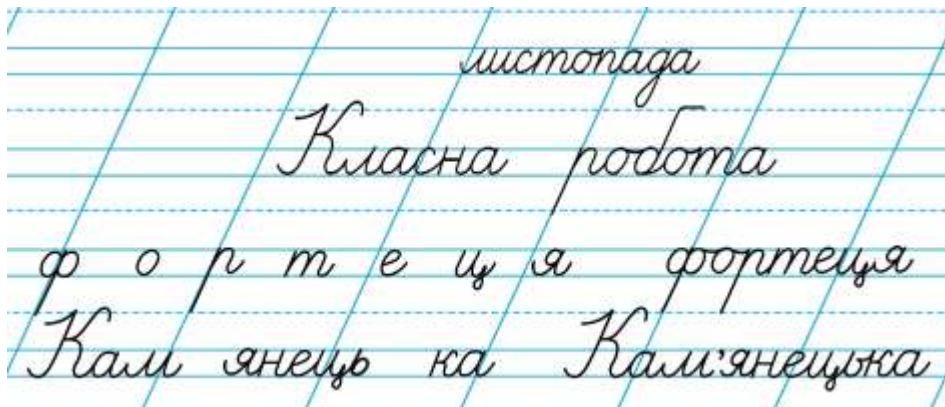 листопада
Класна робота
ф о р т е ц я фортеця
Кам янець ка Кам'янецька